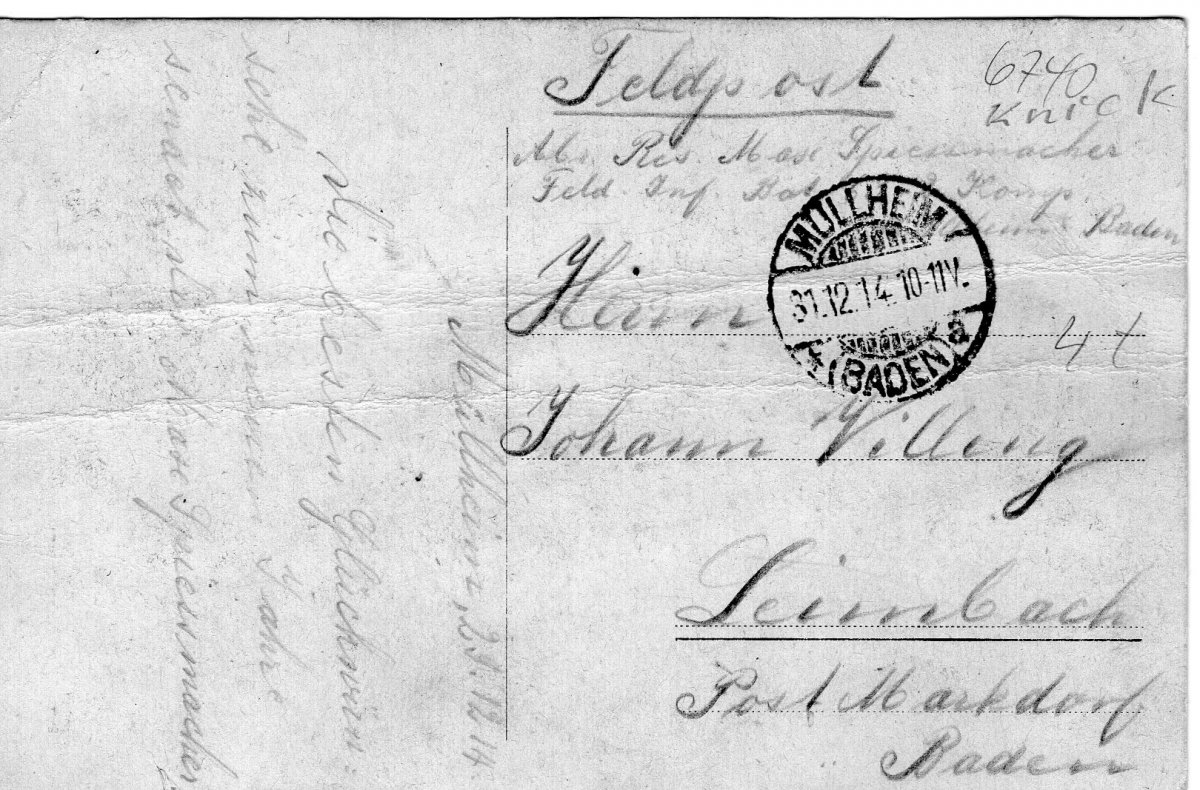 Feldpost
6740
Knick
Abs. Res. Max Spiessmacher
Feld. Inf. Bat. Komp.
Baden
MÜLLHEIM
31.12.14.10-11V.
* (BADEN) a
Herrn
4 t
Johann Villing
Leimbach
Post Markdorf
Baden
Müllheim, 29.12.14
Die besten Glückwün-
sche zum neuen Jahre
sendet Max Spiessmacher